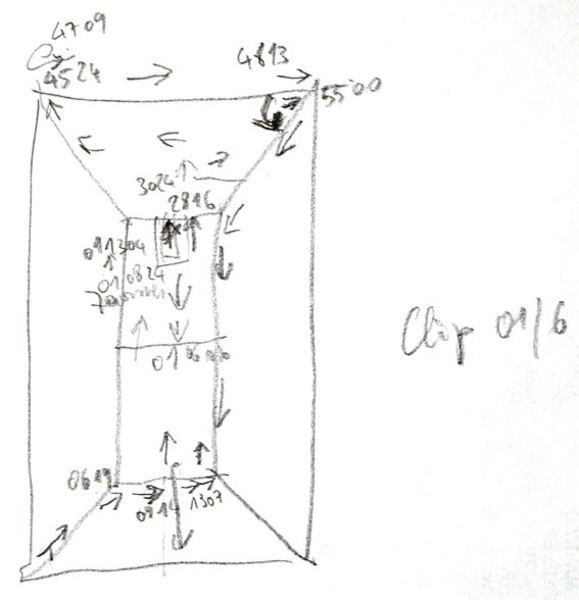 4709
4524
4813
5500
3024
2816
011304
010824
0619
0914
1307
Clip 01/6